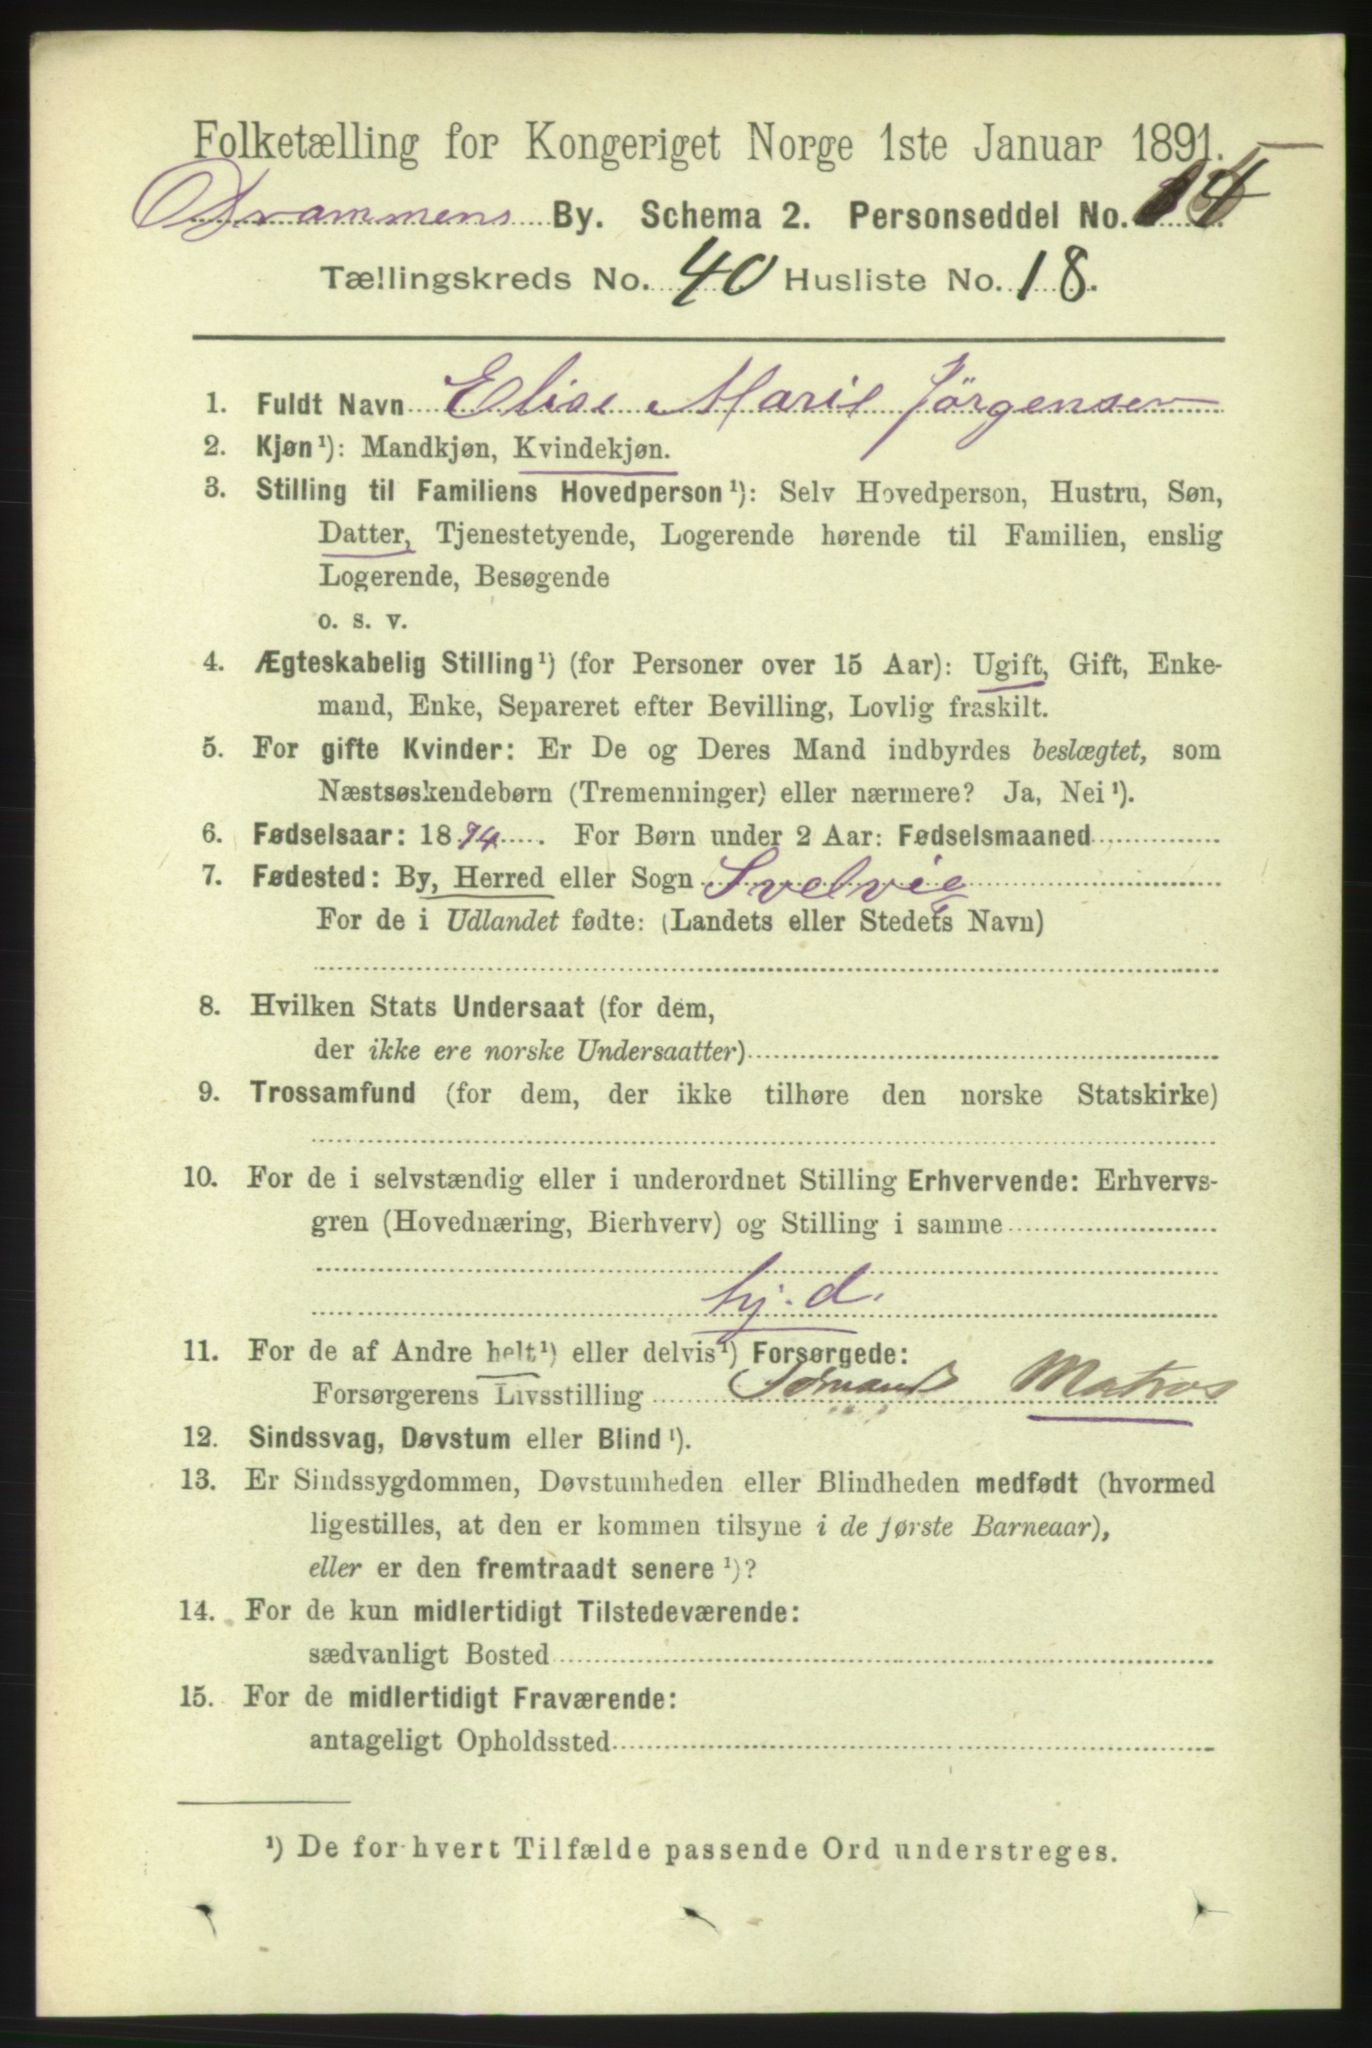 Folketælling for Kongeriget Norge 1ste Januar 1891.
Drammens By. Schema 2. Personseddel No. 14
Tællingskreds No. 40 Husliste No. 18.
1. Fuldt Navn Elise Marie Jörgensen
2. Kjøn¹): Mandkjøn, Kvindekjøn.
3. Stilling til Familiens Hovedperson¹): Selv Hovedperson, Hustru, Søn,
Datter, Tjenestetyende, Logerende hørende til Familien, enslig
Logerende, Besøgende
o. s. v.
4. Ægteskabelig Stilling¹) (for Personer over 15 Aar): Ugift, Gift, Enke-
mand, Enke, Separeret efter Bevilling, Lovlig fraskilt.
5. For gifte Kvinder: Er De og Deres Mand indbyrdes beslægtet, som
Næstsøskendebørn (Tremenninger) eller nærmere? Ja, Nei¹).
6. Fødselsaar: 1874. For Børn under 2 Aar: Fødselsmaaned
7. Fødested: By, Herred eller Sogn Svelvig
For de i Udlandet fødte: (Landets eller Stedets Navn)
8. Hvilken Stats Undersaat (for dem,
der ikke ere norske Undersaatter)
9. Trossamfund (for dem, der ikke tilhøre den norske Statskirke)
10. For de i selvstændig eller i underordnet Stilling Erhvervende: Erhvervs-
gren (Hovednæring, Bierhverv) og Stilling i samme
hj. d.
11. For de af Andre helt¹) eller delvis¹) Forsørgede:
Forsørgerens Livsstilling Sömand Matros
12. Sindssvag, Døvstum eller Blind¹).
13. Er Sindssygdommen, Døvstumheden eller Blindheden medfødt (hvormed
ligestilles, at den er kommen tilsyne i de første Barneaar),
eller er den fremtraadt senere¹)?
14. For de kun midlertidigt Tilstedeværende:
sædvanligt Bosted
15. For de midlertidigt Fraværende:
antageligt Opholdssted
¹) De for hvert Tilfælde passende Ord understreges.